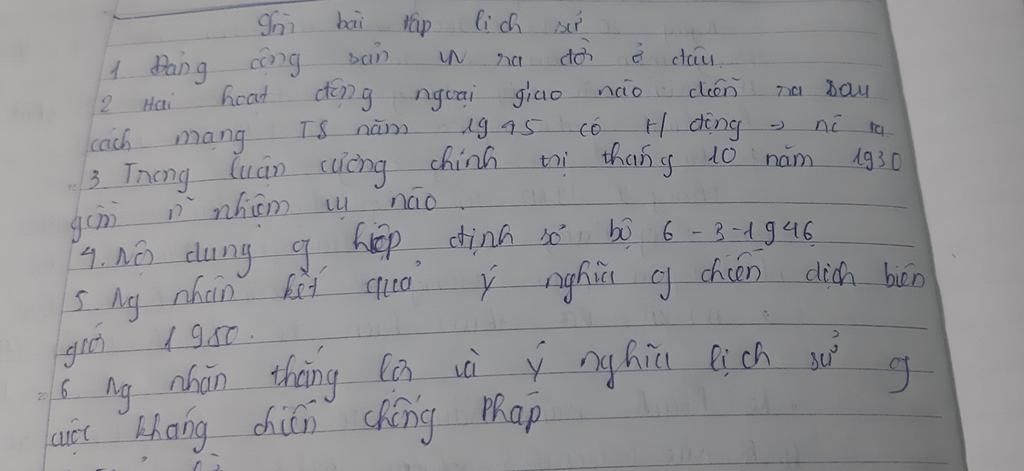 ghi bài tập lịch sử
1 Đảng cộng sản VN ra đời ở đâu
2 Hai hoạt động ngoại giao nào diễn ra sau
cách mạng T8 năm 1945 có t/động →
3 Trong luận cương chính trị tháng 10 năm 1930
gồm n~ nhiệm vụ nào.
4. Nội dung g hiệp định sơ bộ 6-3-1946
5 Ng nhân kết quả ý nghĩa g chiến dịch biên
giới 1950.
6 Ng nhân thắng lợi và ý nghĩa lịch sử g
cuộc kháng chiến chống Pháp